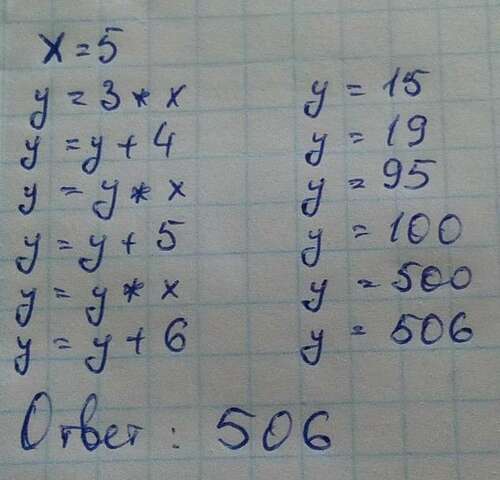 x = 5
y = 3 * x    y = 15
y = y + 4    y = 19
y = y * x    y = 95
y = y + 5    y = 100
y = y * x    y = 500
y = y + 6    y = 506
Ответ : 506